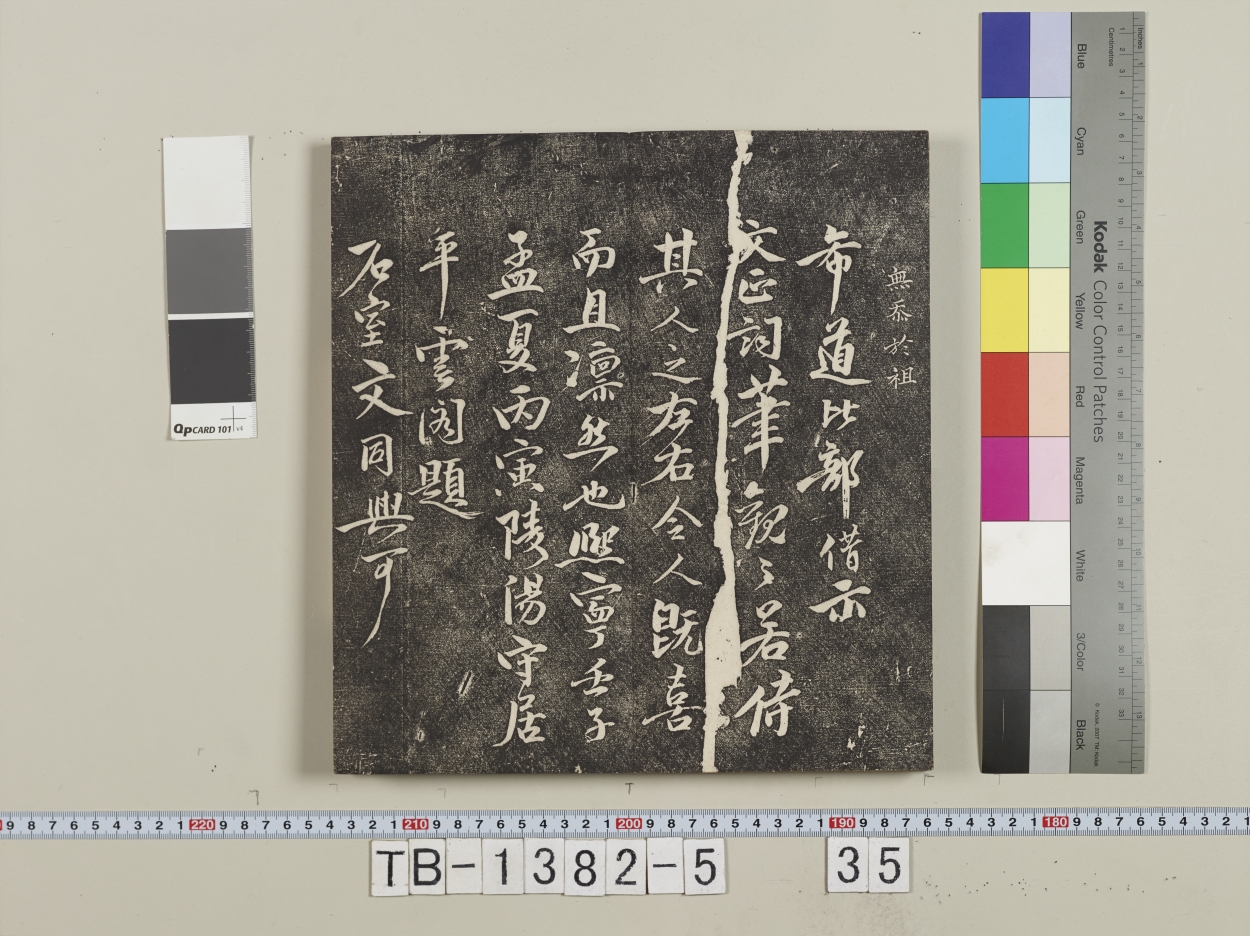 無忝於祖
希道比部借示
文正詞筆觀之若侍
其人之左右令人既喜
而且凛然也熙寧壬子
孟夏丙寅陵陽守居
平雲閣題
石室文同與可
QPCARD 101 v4
Kodak Color Control Patches
Blue
Cyan
Green
Yellow
Red
Magenta
White
3/Color
Black
Inches
Centimetres
9 8 7 6 5 4 3 2 1 220 9 8 7 6 5 4 3 2 1 210 9 8 7 6 5 4 3 2 1 200 9 8 7 6 5 4 3 2 1 190 9 8 7 6 5 4 3 2 1 180 9 8 7 6 5 4 3 2 1
TB-1382-5 35